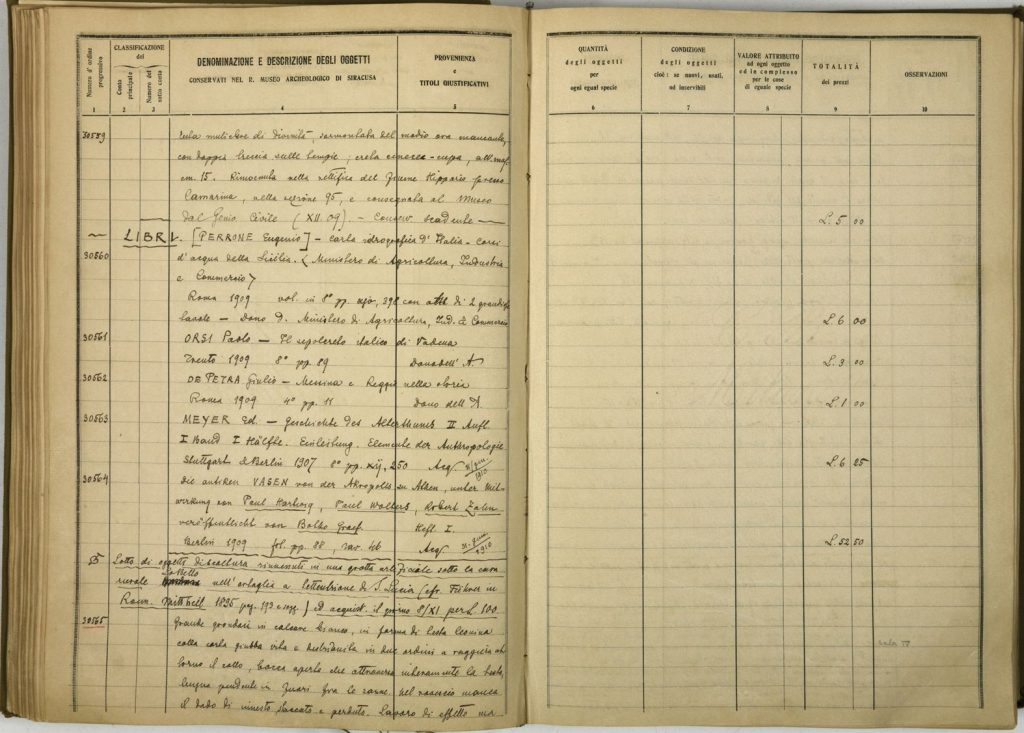 Numero d'ordine progressivo
CLASSIFICAZIONE
del
Conto principale
Numero del sotto conto
DENOMINAZIONE E DESCRIZIONE DEGLI OGGETTI
CONSERVATI NEL R. MUSEO ARCHEOLOGICO DI SIRACUSA
PROVENIENZA
e
TITOLI GIUSTIFICATIVI
1 2 3 4 5
30559 testa muliebre di divinità, sormontata del modio ora mancante,
con doppia treccia sulle tempie; creta cinerea-cupa, alt. mass.
cm. 15. Rinvenuta nella rettifica del fiume Hipparis presso
Camarina, nella sezione 95, e consegnata al Museo
dal Genio Civile (XII.09). - Conserv. scadente
LIBRI. [PERRONE Eugenio] - Carta idrografica d'Italia - Corsi
30560 d'acqua della Sicilia. (Ministero di Agricoltura, Industria
e Commercio)
Roma 1909 vol. in 8° pp. 398 con di 2 grandi
tavole - Dono d. Ministero di Agricoltura, Ind. e Commercio
30561 ORSI Paolo - Il sepolcreto italico di Vadena
Trento 1909 8° pp. 89 Dono dell' A.
30562 DE PETRA Giulio - Messina e Reggio nella storia
Roma 1909 4° pp. 11 Dono dell'A.
30563 MEYER Ed. - Geschichte des Alterthums II Aufl
I Band I Hälfte. Einleitung. Elemente der Anthropologie
Stuttgart & Berlin 1907 8° pp. xij, 250 Acq. 1910
30564 Die antiken VASEN von der Akropolis zu Athen, unter Mit-
wirkung von Paul Hartwig, Paul Wolters, Robert Zahn
veröffentlicht von Botho Graef. Heft I.
Berlin 1909 fol. pp. 88, tav. Acq. 1910
Lotto di oggetti di scultura rinvenuti in una grotta artificiale sotto la casa
rurale nell'ortaglia a settentrione di S. Lucia (cfr. Führer in
Röm. Mittheil. 1895 pag. e segg.) ed acquist. il giorno 8/XI per L. 100
30565 Grande grondaia in calcare bianco, in forma di testa leonina
colla corta giubba irta e distribuita in due ordini a raggiera at-
torno il collo, bocca aperta che attraversa interamente la testa,
lingua pendente in fuori fra le zanne, nel rovescio manca
il dado di innesto staccato e perduto. Lavoro di effetto ma
QUANTITÀ
degli oggetti
per
ogni egual specie
CONDIZIONE
degli oggetti
cioè: se nuovi, usati,
od inservibili
VALORE ATTRIBUTO
ad ogni oggetto
ed in complesso
per le cose
di eguale specie
TOTALITÀ
dei prezzi
OSSERVAZIONI
6 7 8 9 10
L. 5 00
L. 6 00
L. 3 00
L. 1 00
L. 6 25
L. 52 50